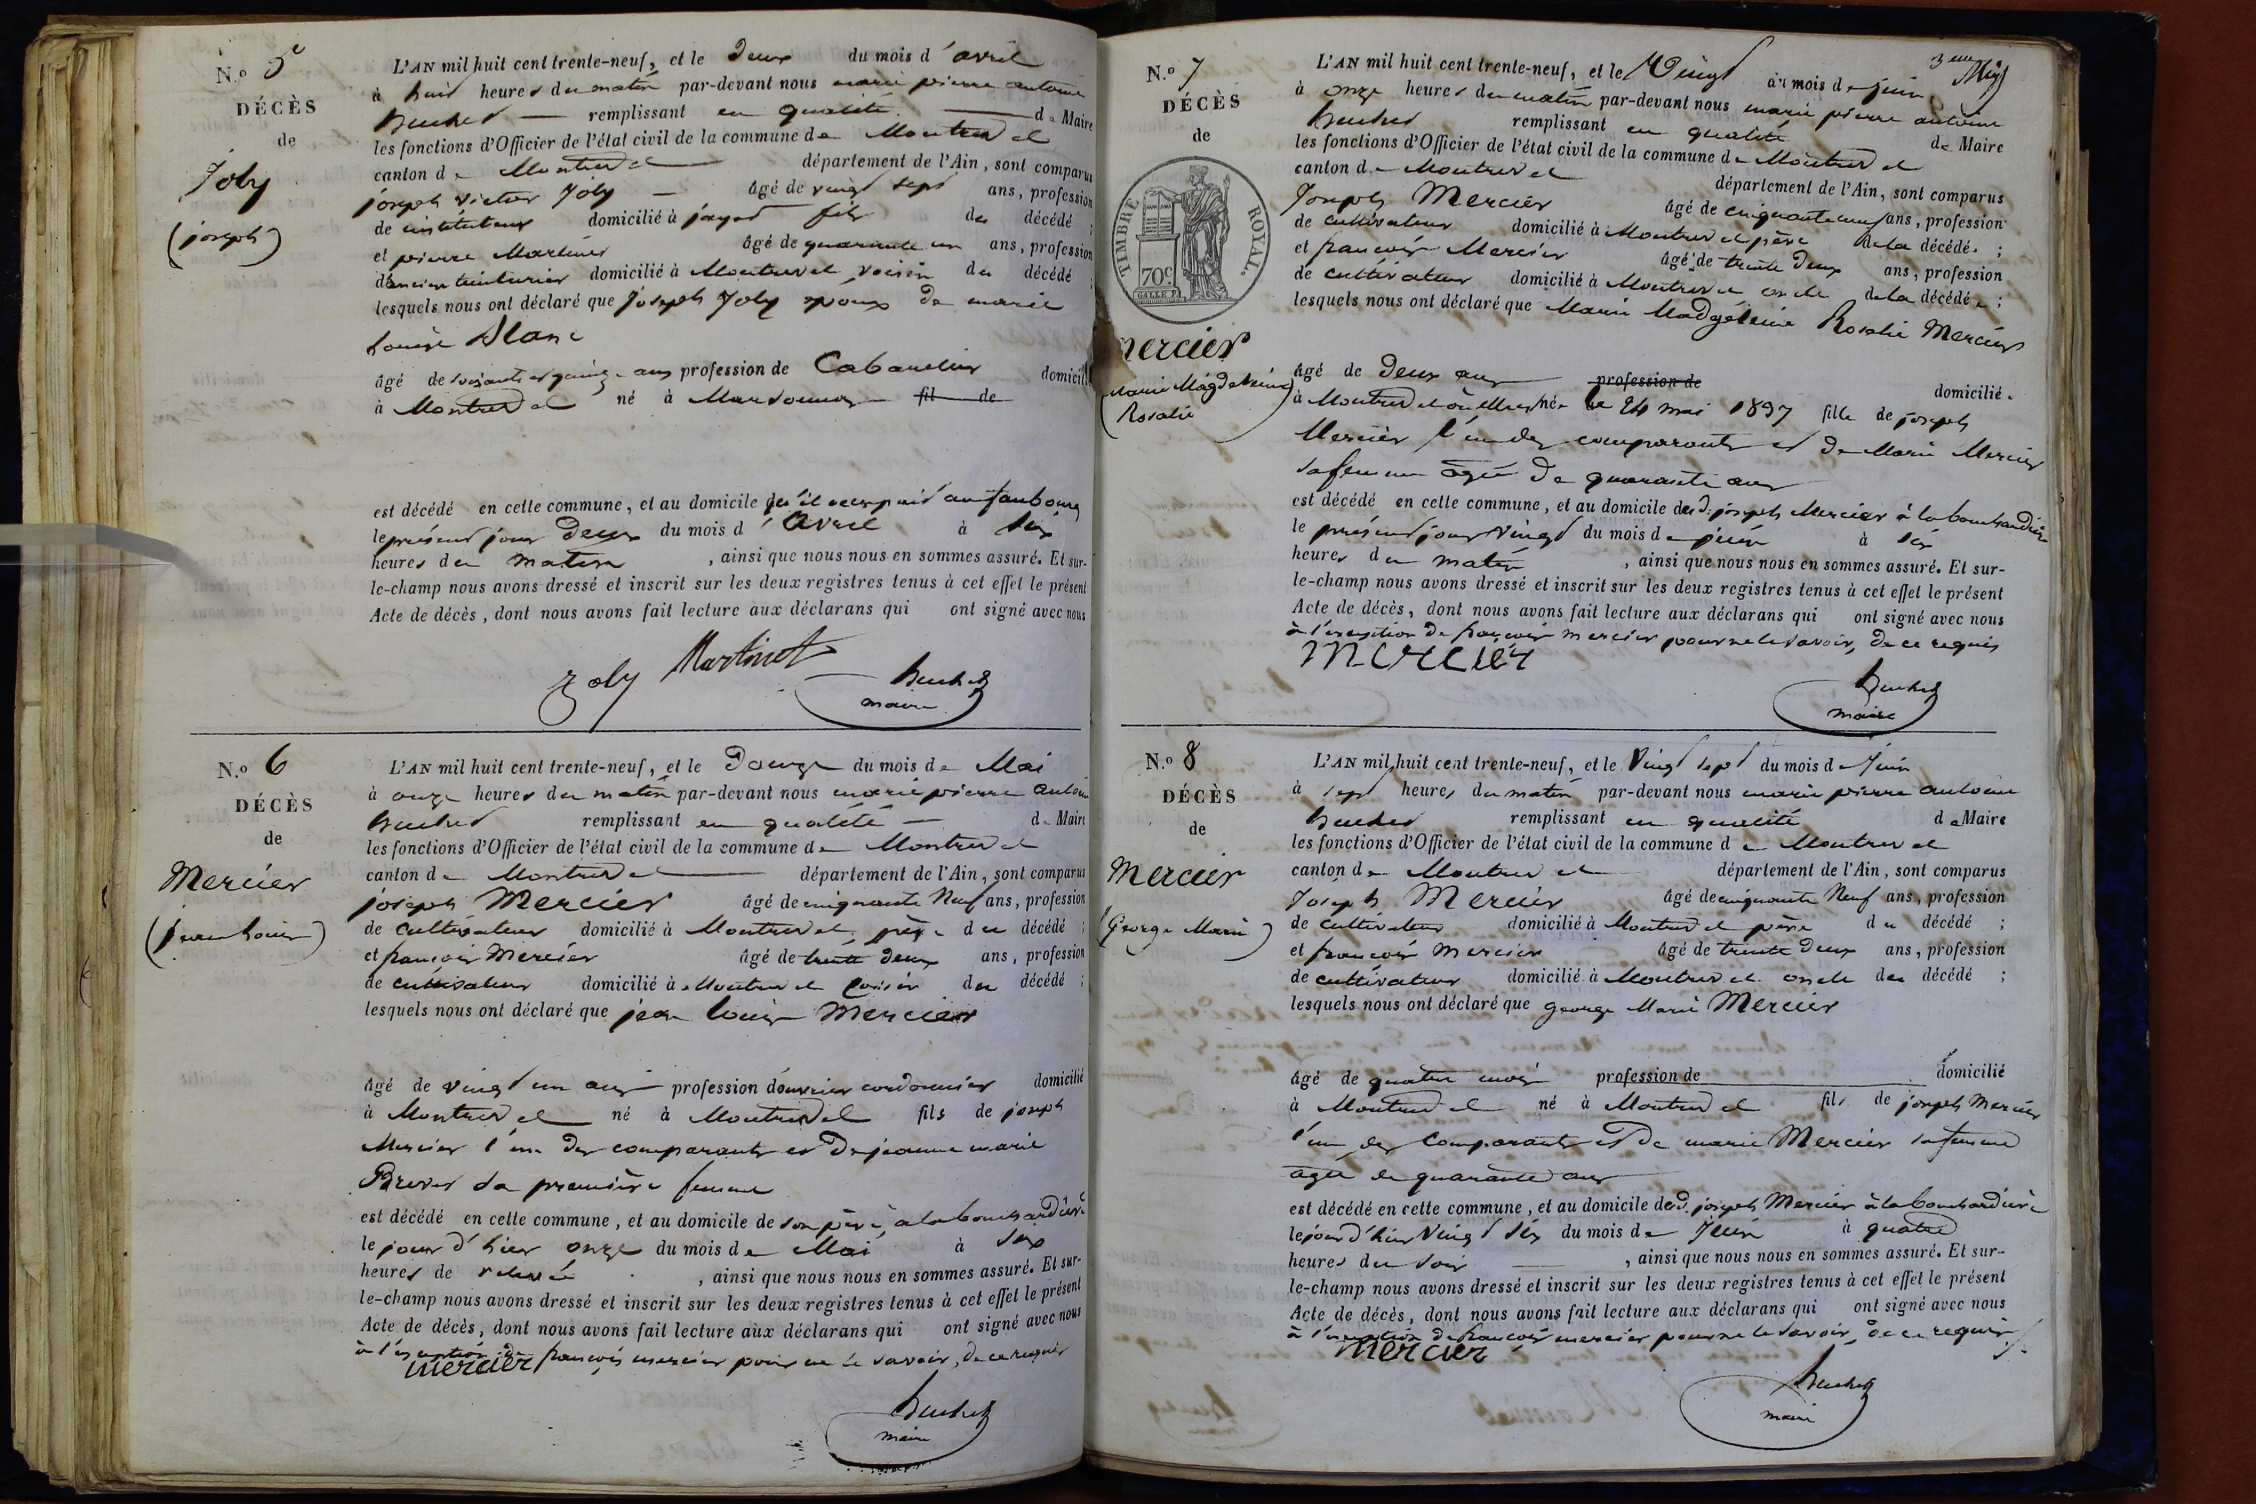 N.o 5
DÉCÈS
de
Joly
(joseph)
L'AN mil huit cent trente-neuf, et le Deux du mois d'avril
à huit heures du matin par-devant nous marie pierre antoine
remplissant en qualité de Maire
les fonctions d'Officier de l'état civil de la commune de Montrevel
canton de Montrevel département de l'Ain, sont comparus
joseph victor Joly âgé de vingt sept ans, profession
de instituteur domicilié à jayat fils du décédé ;
et pierre Martinet âgé de quarante un ans, profession
d'ancien teinturier domicilié à Montrevel voisin du décédé ;
lesquels nous ont déclaré que Joseph Joly époux de marie
Louise Blanc
âgé de soixante et quinze ans profession de Cabaretier domicilié
à Montrevel né à Marsonnay fil de
est décédé en cette commune, et au domicile qu'il occupait au faubourg
le présent jour Deux du mois d'avril à six
heures du matin, ainsi que nous nous en sommes assuré. Et sur-
le-champ nous avons dressé et inscrit sur les deux registres tenus à cet effet le présent
Acte de décès, dont nous avons fait lecture aux déclarans qui ont signé avec nous
Joly Martinet
maire
N.o 6
DÉCÈS
de
Mercier
(jean Louis)
L'AN mil huit cent trente-neuf, et le Douze du mois de Mai
à onze heures du matin par-devant nous marie pierre antoine
remplissant en qualité de Maire
les fonctions d'Officier de l'état civil de la commune de Montrevel
canton de Montrevel département de l'Ain, sont comparus
joseph Mercier âgé de cinquante Neuf ans, profession
de cultivateur domicilié à Montrevel père du décédé ;
et françois Mercier âgé de trente deux ans, profession
de cultivateur domicilié à Montrevel cousin du décédé ;
lesquels nous ont déclaré que jean louis Mercier
âgé de vingt un ans profession d'ouvrier cordonnier domicilié
à Montrevel né à Montrevel fils de joseph
Mercier l'un des comparants et de jeanne marie
sa première femme
est décédé en cette commune, et au domicile de son père, à la bouchardière
le jour d'hier onze du mois de Mai à six
heures de relevée, ainsi que nous nous en sommes assuré. Et sur-
le-champ nous avons dressé et inscrit sur les deux registres tenus à cet effet le présent
Acte de décès, dont nous avons fait lecture aux déclarans qui ont signé avec nous
à l'exception de françois mercier pour ne le savoir, de ce requis
mercier
maire
3eme
N.o 7
DÉCÈS
de
TIMBRE ROYAL.
70c
mercier
(Marie Magdeleine
Rosalie)
L'AN mil huit cent trente-neuf, et le Vingt du mois de juin
à onze heures du matin par-devant nous marie pierre antoine
remplissant en qualité de Maire
les fonctions d'Officier de l'état civil de la commune de Montrevel
canton de Montrevel département de l'Ain, sont comparus
Joseph Mercier âgé de cinquante neuf ans, profession
de cultivateur domicilié à Montrevel père de la décédée ;
et françois Mercier âgé de trente Deux ans, profession
de cultivateur domicilié à Montrevel oncle de la décédée ;
lesquels nous ont déclaré que Marie Madgeleine Rosalie Mercier
âgé de Deux ans profession de domiciliée
à Montrevel où elle est née le 24 mai 1837 fille de joseph
Mercier l'un des comparants et de Marie Mercier
sa femme âgée de quarante ans
est décédé en cette commune, et au domicile dud. joseph Mercier à la bouchardière
le présent jour vingt du mois de juin à six
heures du matin, ainsi que nous nous en sommes assuré. Et sur-
le-champ nous avons dressé et inscrit sur les deux registres tenus à cet effet le présent
Acte de décès, dont nous avons fait lecture aux déclarans qui ont signé avec nous
à l'exception de françois mercier pour ne le savoir, de ce requis
mercier
maire
N.o 8
DÉCÈS
de
Mercier
(George Marie)
L'AN mil huit cent trente-neuf, et le Vingt sept du mois de Juin
à sept heures du matin par-devant nous marie pierre antoine
remplissant en qualité de Maire
les fonctions d'Officier de l'état civil de la commune de Montrevel
canton de Montrevel département de l'Ain, sont comparus
Joseph Mercier âgé de cinquante Neuf ans, profession
de cultivateur domicilié à Montrevel père du décédé ;
et françois Mercier âgé de trente Deux ans, profession
de cultivateur domicilié à Montrevel oncle du décédé ;
lesquels nous ont déclaré que george Marie Mercier
âgé de quatre mois profession de domicilié
à Montrevel né à Montrevel fils de joseph Mercier
l'un des comparants et de marie Mercier sa femme
agée de quarante ans
est décédé en cette commune, et au domicile dud. joseph Mercier à la bouchardière
le jour d'hier vingt six du mois de Juin à quatre
heures du soir, ainsi que nous nous en sommes assuré. Et sur-
le-champ nous avons dressé et inscrit sur les deux registres tenus à cet effet le présent
Acte de décès, dont nous avons fait lecture aux déclarans qui ont signé avec nous
à l'exception de françois mercier pour ne le savoir, de ce requis
mercier
maire